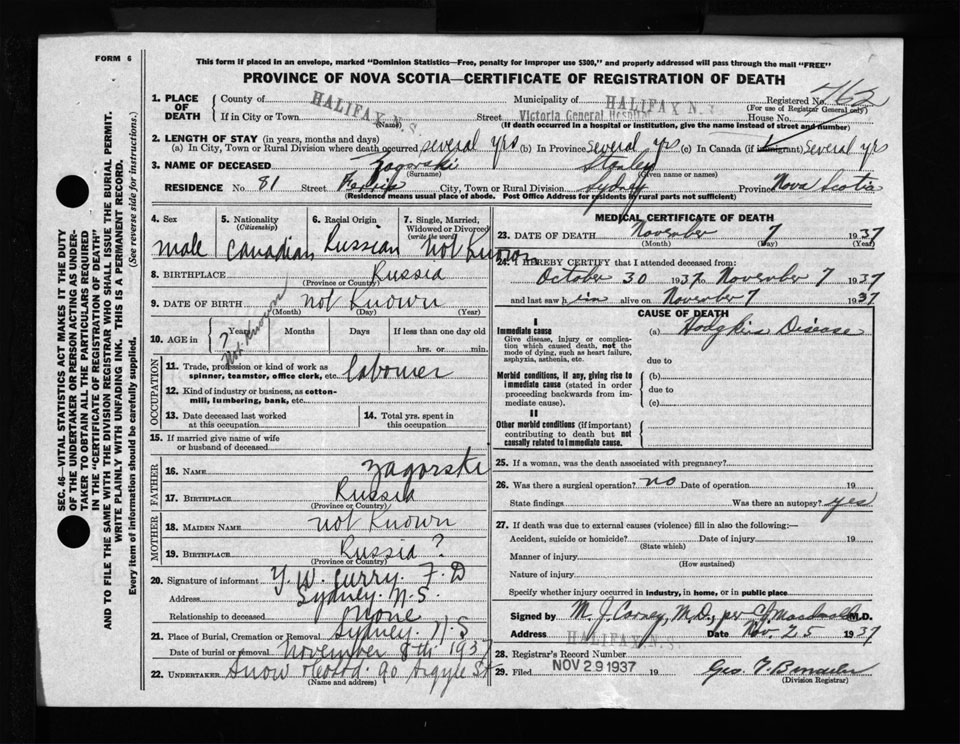 FORM 6
This form if placed in an envelope, marked "Dominion Statistics—Free, penalty for improper use $300," and properly addressed will pass through the mail "FREE"
PROVINCE OF NOVA SCOTIA—CERTIFICATE OF REGISTRATION OF DEATH
SEC. 46—VITAL STATISTICS ACT MAKES IT THE DUTY
OF THE UNDERTAKER OR PERSON ACTING AS UNDER-
TAKER TO OBTAIN ALL THE PARTICULARS REQUIRED
IN THE "CERTIFICATE OF REGISTRATION OF DEATH"
AND TO FILE THE SAME WITH THE DIVISION REGISTRAR WHO SHALL ISSUE THE BURIAL PERMIT.
WRITE PLAINLY WITH UNFADING INK. THIS IS A PERMANENT RECORD.
Every item of information should be carefully supplied. (See reverse side for instructions.)
1. PLACE OF DEATH
County of HALIFAX N.S. Municipality of HALIFAX N.S. Registered No. 463
(For use of Registrar General only)
If in City or Town (Name) Street Victoria General Hospital House No.
(If death occurred in a hospital or institution, give the name instead of street and number)
2. LENGTH OF STAY (in years, months and days)
(a) In City, Town or Rural Division where death occurred several yrs (b) In Province Several yrs (c) In Canada (if immigrant) Several yrs
3. NAME OF DECEASED Zagorski Stanley
(Surname) (Given name or names)
RESIDENCE No. 81 Street City, Town or Rural Division Sydney Province Nova Scotia
(Residence means usual place of abode. Post Office Address for residents in rural parts not sufficient)
4. Sex male
5. Nationality (Citizenship) Canadian
6. Racial Origin Russian
7. Single, Married, Widowed or Divorced (write the word) not Known
8. BIRTHPLACE Russia
(Province or Country)
9. DATE OF BIRTH not Known
(Month) (Day) (Year)
10. AGE in Years ? Not Known Months Days If less than one day old hrs. or min.
OCCUPATION
11. Trade, profession or kind of work as spinner, teamster, office clerk, etc. labourer
12. Kind of industry or business, as cotton-mill, lumbering, bank, etc.
13. Date deceased last worked at this occupation
14. Total yrs. spent in this occupation
15. If married give name of wife or husband of deceased
FATHER
16. NAME Zagorski
17. BIRTHPLACE Russia
(Province or Country)
MOTHER
18. MAIDEN NAME not Known
19. BIRTHPLACE Russia ?
(Province or Country)
20. Signature of informant Y. W. Curry. F. D
Address Sydney. N.S.
Relationship to deceased None
21. Place of Burial, Cremation or Removal Sydney. N.S
Date of burial or removal November 8th 1937
22. UNDERTAKER Snow 90 Argyle St
(Name and address)
MEDICAL CERTIFICATE OF DEATH
23. DATE OF DEATH November 7 1937
(Month) (Day) (Year)
24. I HEREBY CERTIFY that I attended deceased from:
October 30 1937 to November 7 1937
and last saw him alive on November 7 1937
CAUSE OF DEATH
I
Immediate cause (a) Hodgkins Disease
Give disease, injury or complication which caused death, not the mode of dying, such as heart failure, asphyxia, asthenia, etc.
due to
Morbid conditions, if any, giving rise to immediate cause (stated in order proceeding backwards from immediate cause).
(b)
due to
(c)
II
Other morbid conditions (if important) contributing to death but not causally related to immediate cause.
25. If a woman, was the death associated with pregnancy?
26. Was there a surgical operation? no Date of operation 19
State findings Was there an autopsy? yes
27. If death was due to external causes (violence) fill in also the following:—
Accident, suicide or homicide? Date of injury 19
(State which)
Manner of injury
(How sustained)
Nature of injury
Specify whether injury occurred in industry, in home, or in public place
Signed by M. J. Carney, M.D., per M.D.
Address HALIFAX N.S. Date Nov. 25 1937
28. Registrar's Record Number
29. Filed NOV 29 1937 19
(Division Registrar)